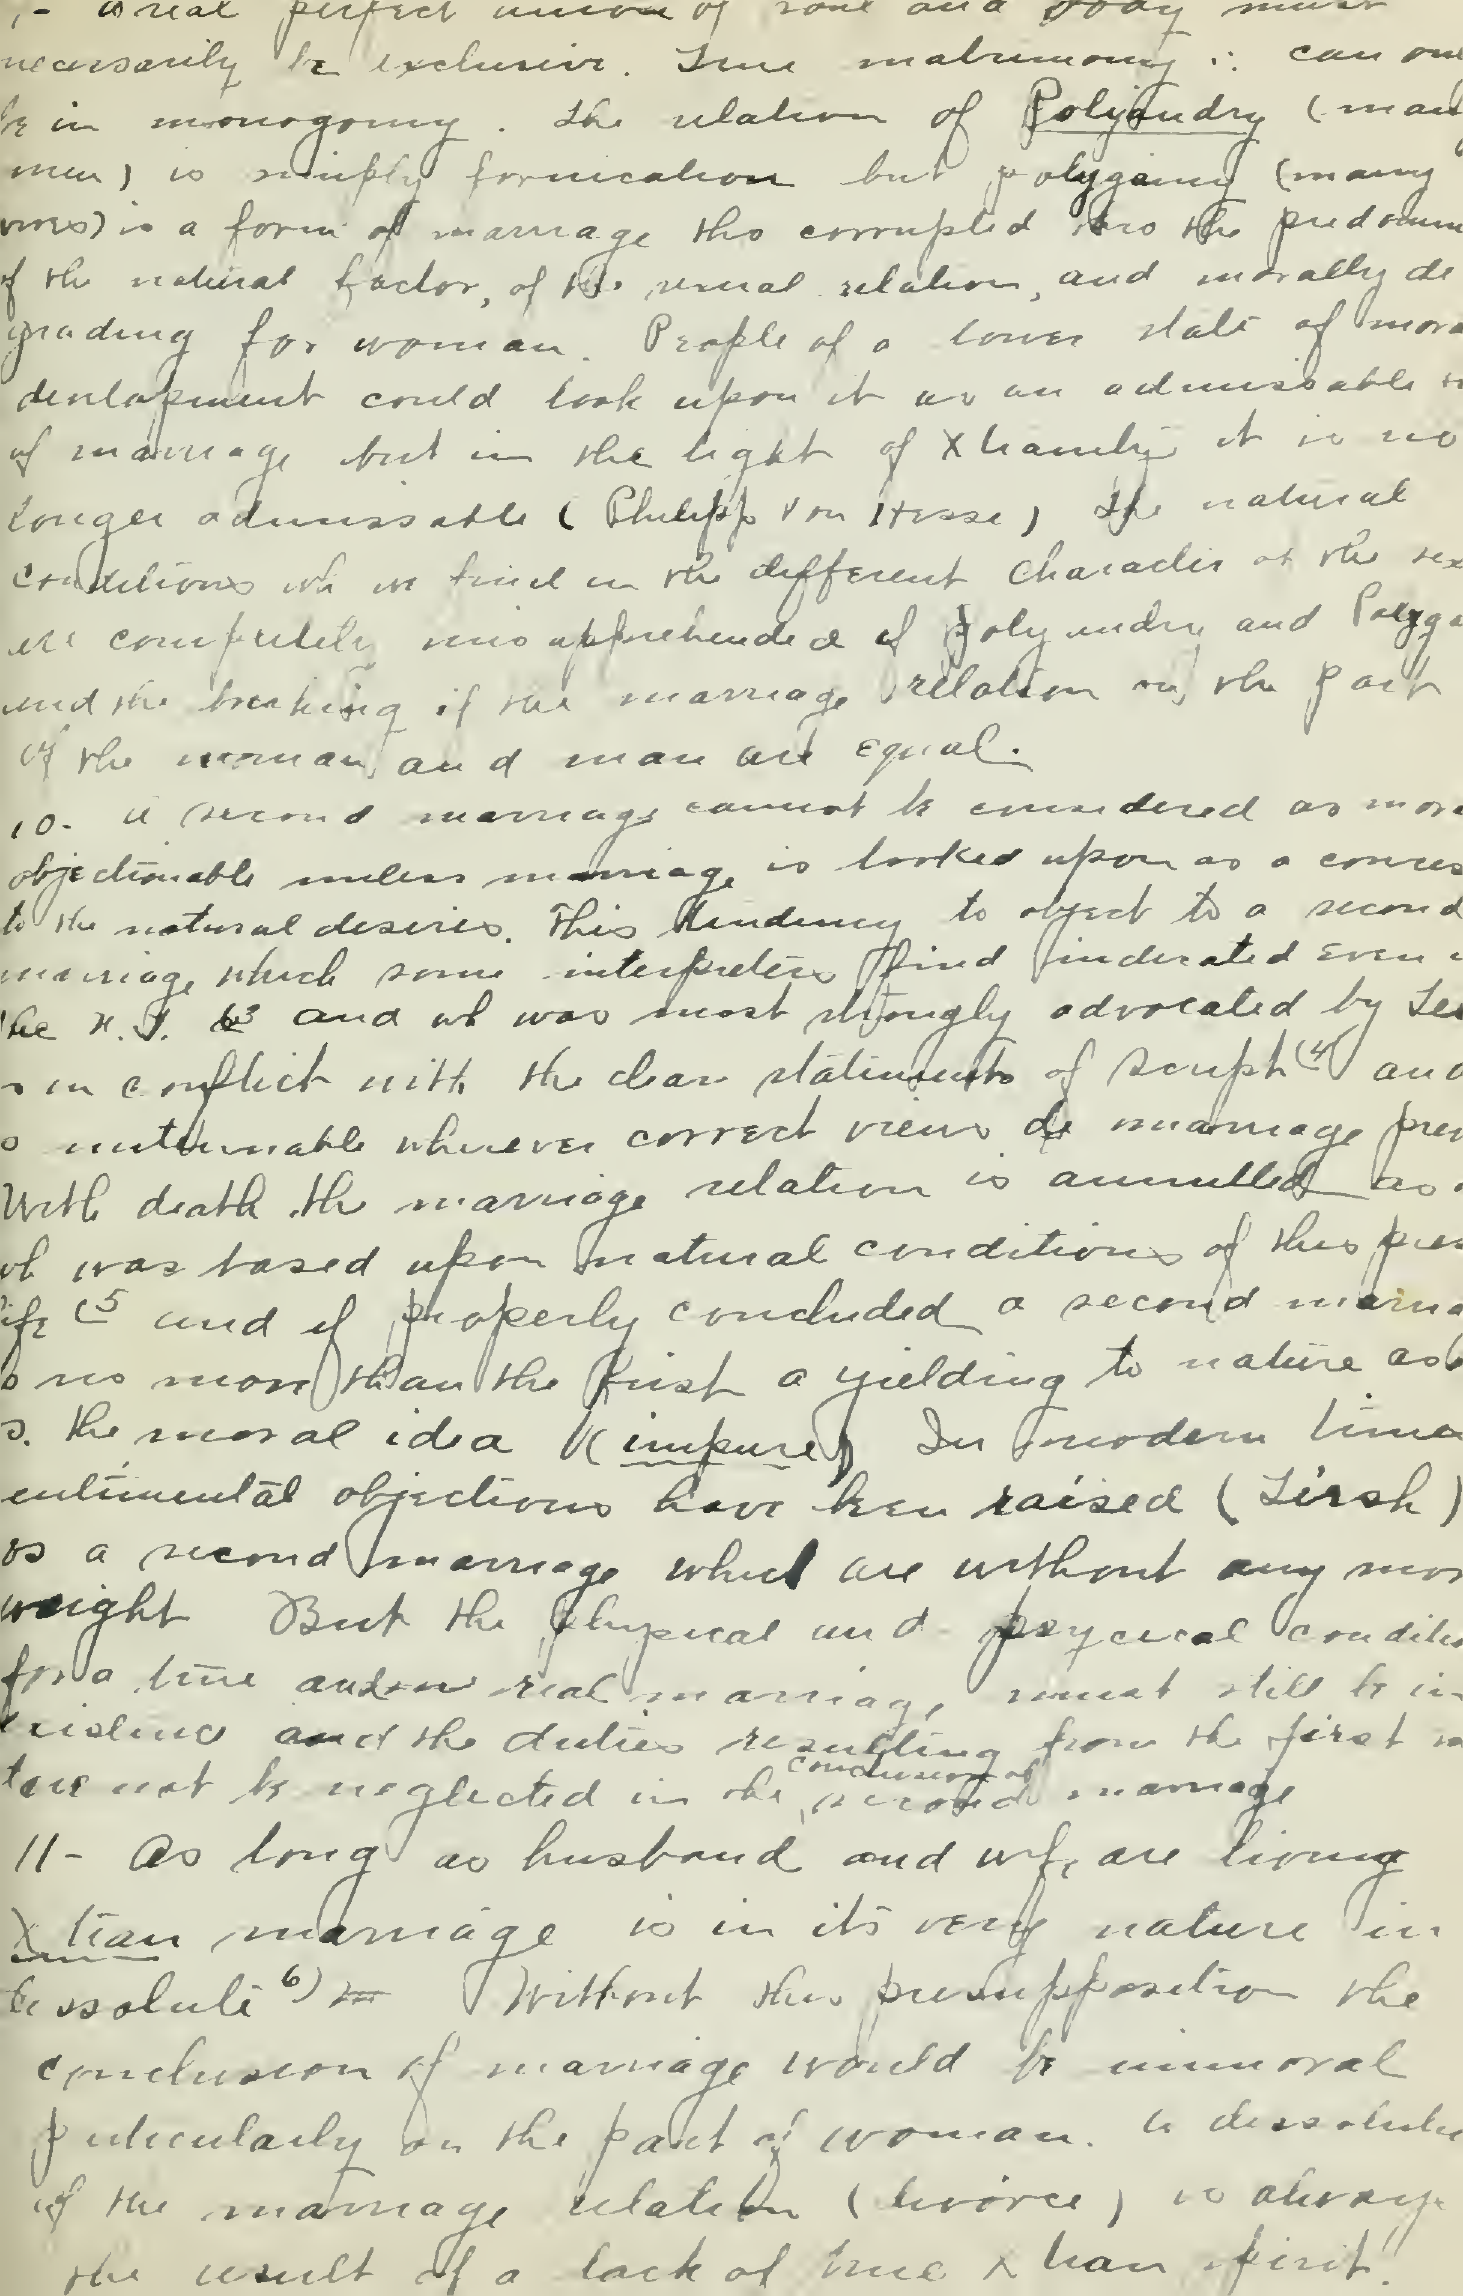 a real perfect union of soul and body must
necessarily be exclusive. True matrimony ∴ can on
be in monogomy. The relation of Polyandry (man
men) is simply fornication but polygamy (many
wives) is a form of marriage tho corrupted thro the predomin
of the natural factor, of the sexual relation, and morally de
grading for woman. People of a lower state of mora
development could look upon it as an admissable
of marriage but in the light of Xtianity it is no
longer admissable (Philipp von Hesse) The natural
conditions wh we find in the different character of the sex
are completely misapprehended if polyandry and Polyga
and the breaking of the marriage relation on the part
of the woman and man are equal.
10. A second marriage cannot be considered as mora
objectionable unless marriage is looked upon as a conces
to the natural desires. This tendency to object to a second
marriage which some interpreters find indicated even
the N.T. 3 and wh was most strongly advocated by Ter
in conflict with the clear statements of Script (4) and
untenable wherever correct views of marriage prev
With death the marriage relation is annulled as
wh was based upon natural conditions of this pres
life (5 and if properly concluded a second marria
is no more than the first a yielding to nature as
the moral idea (impure) In modern time
entimental objections have been raised (Lirsh)
as a second marriage which are without any mor
weight But the physical and psycical conditio
for a true and real marriage, must still be in
existence and the duties resulting from the first
not be neglected in the conclusion of second marriage
11- As long as husband and wife are living
Xtian marriage is in its very nature in
dissolute 6) Without this presupposition the
conclusion of marriage would be immoral
puticularly on the part of woman. A dissolutio
of the marriage relation (divorce) is always
the result of a lack of true Xtian spirit.